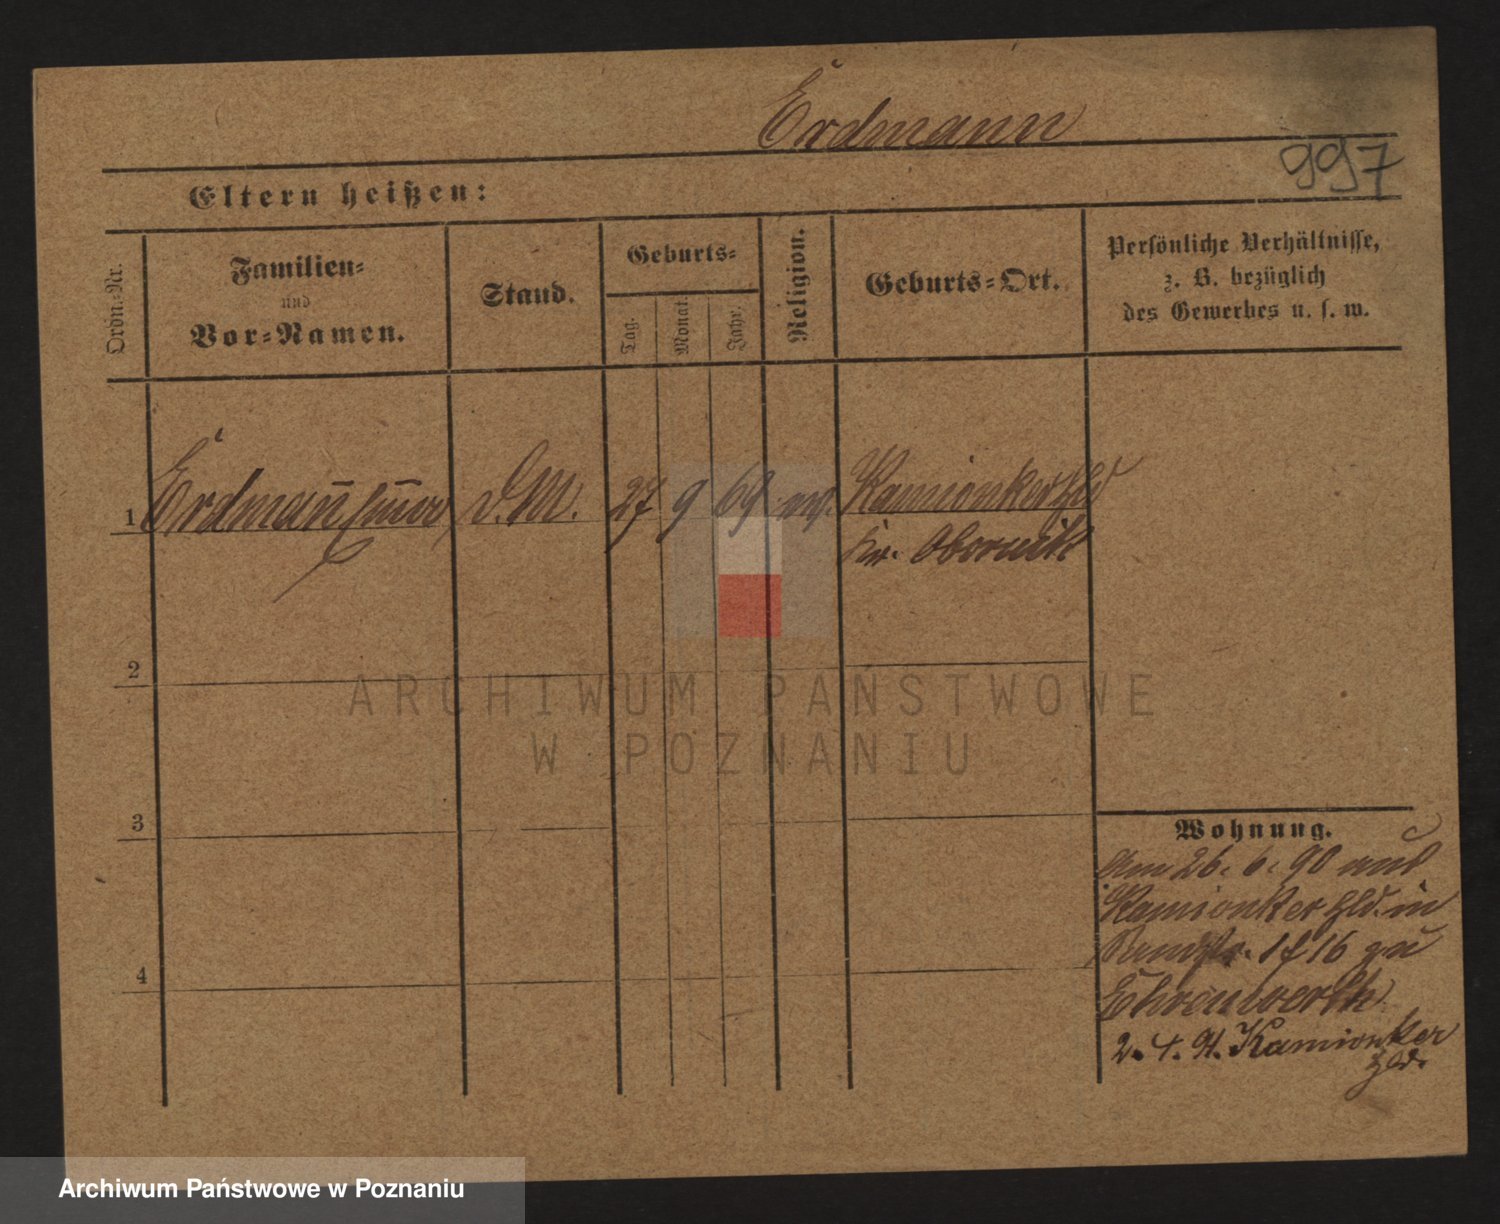 Erdmann
997
Eltern heißen:
Ordn.-Nr.
Familien-
und
Vor-Namen.
Stand.
Geburts-
Tag.
Monat.
Jahr.
Religion.
Geburts-Ort.
Persönliche Verhältnisse,
z. B. bezüglich
des Gewerbes u. s. w.
1 Erdmañ D.M. 27 9 69 Kamionkerhld
Kr. Obornik
2
3
4
Wohnung.
Am 26. 6. 90 aus
Kamionker Hld. in
16 zu
Ehrenwerth
2. 4. 91. Kamionker
Hld.
ARCHIWUM PAŃSTWOWE
W POZNANIU
Archiwum Państwowe w Poznaniu